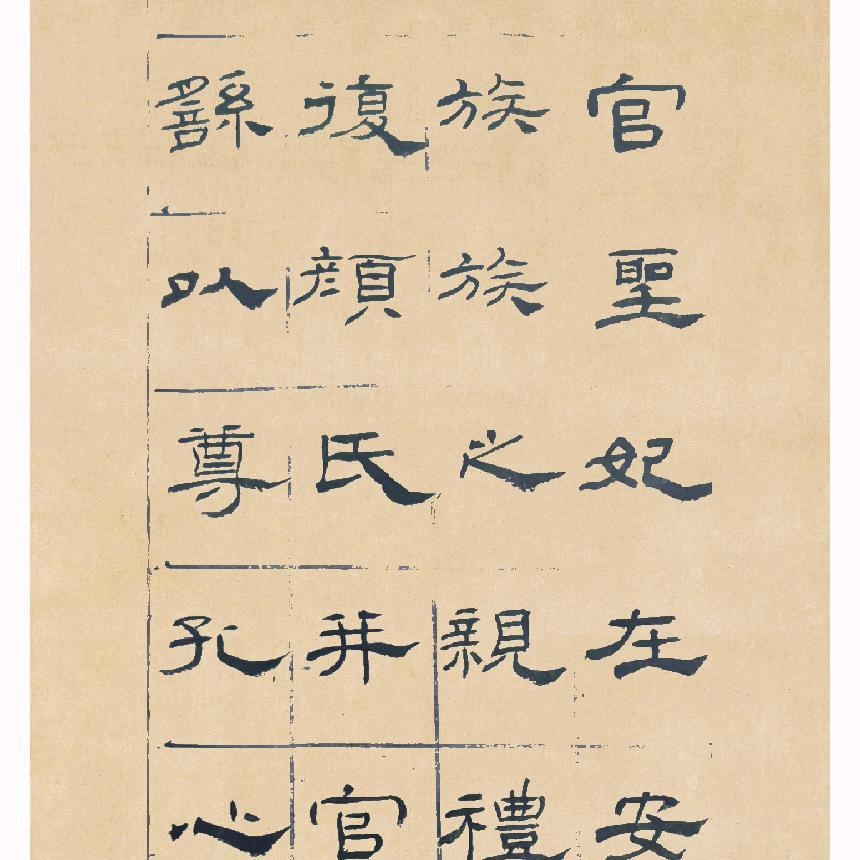 官聖妃在安
族族之親禮
復顏氏并官
繇以尊孔心